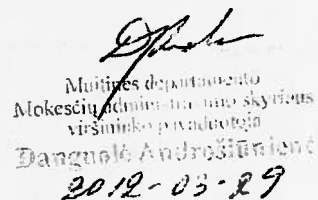 Muitinės departamento
Mokesčių administravimo skyriaus
viršininko pavaduotoja
Danguolė Androšiūnienė
2012-03-29